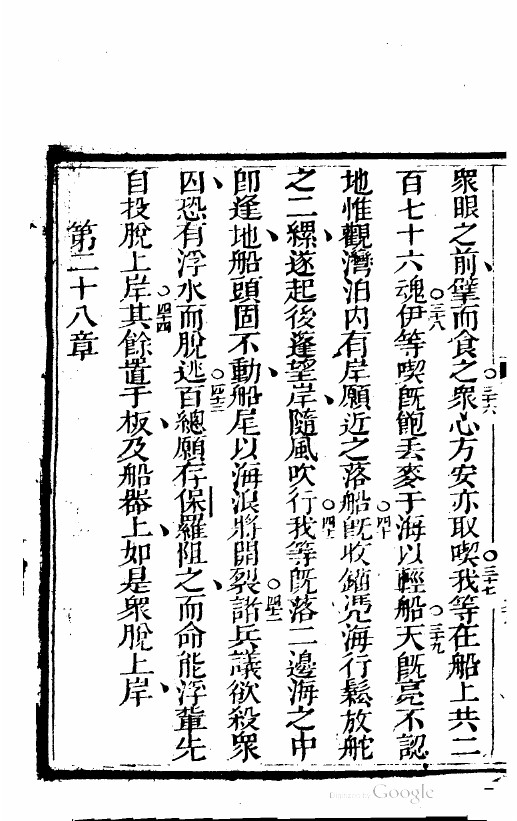 眾眼之前擘而食之眾心方安亦取喫我等在船上共二
三六
三七
百七十六魂伊等喫既飽丟麥于海以輕船天既亮不認
三八
三九
地惟觀灣泊內有岸願近之落船既收錨凴海行鬆放舵
四十
之二縲遂起後篷望岸隨風吹行我等既落二邊海之中
四一
即逢地船頭固不動船尾以海浪將開裂諸兵議欲殺眾
四二
囚恐有浮水而脫逃百總願存保羅阻之而命能浮輩先
四三
自投脫上岸其餘置于板及船器上如是眾脫上岸
四四
第二十八章
Digitized by Google